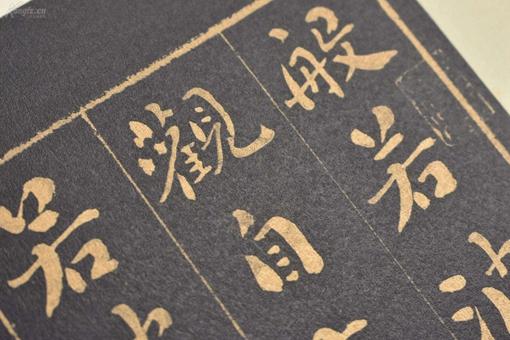 般若
觀自
若